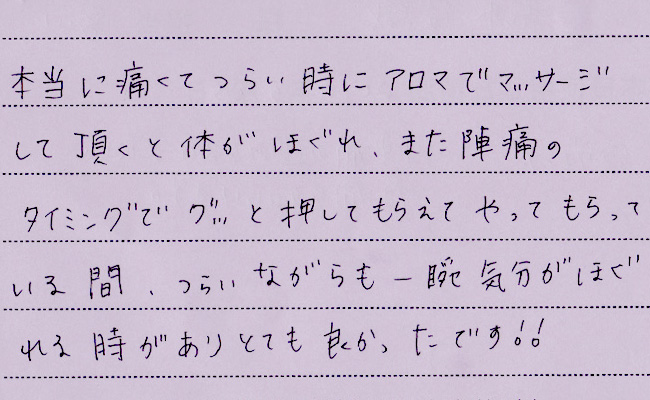 本当に痛くてつらい時にアロマでマッサージ
して頂くと体がほぐれ、また陣痛の
タイミングでグッと押してもらえてやってもらって
いる間、つらいながらも一瞬気分がほぐ
れる時がありとても良かったです!!